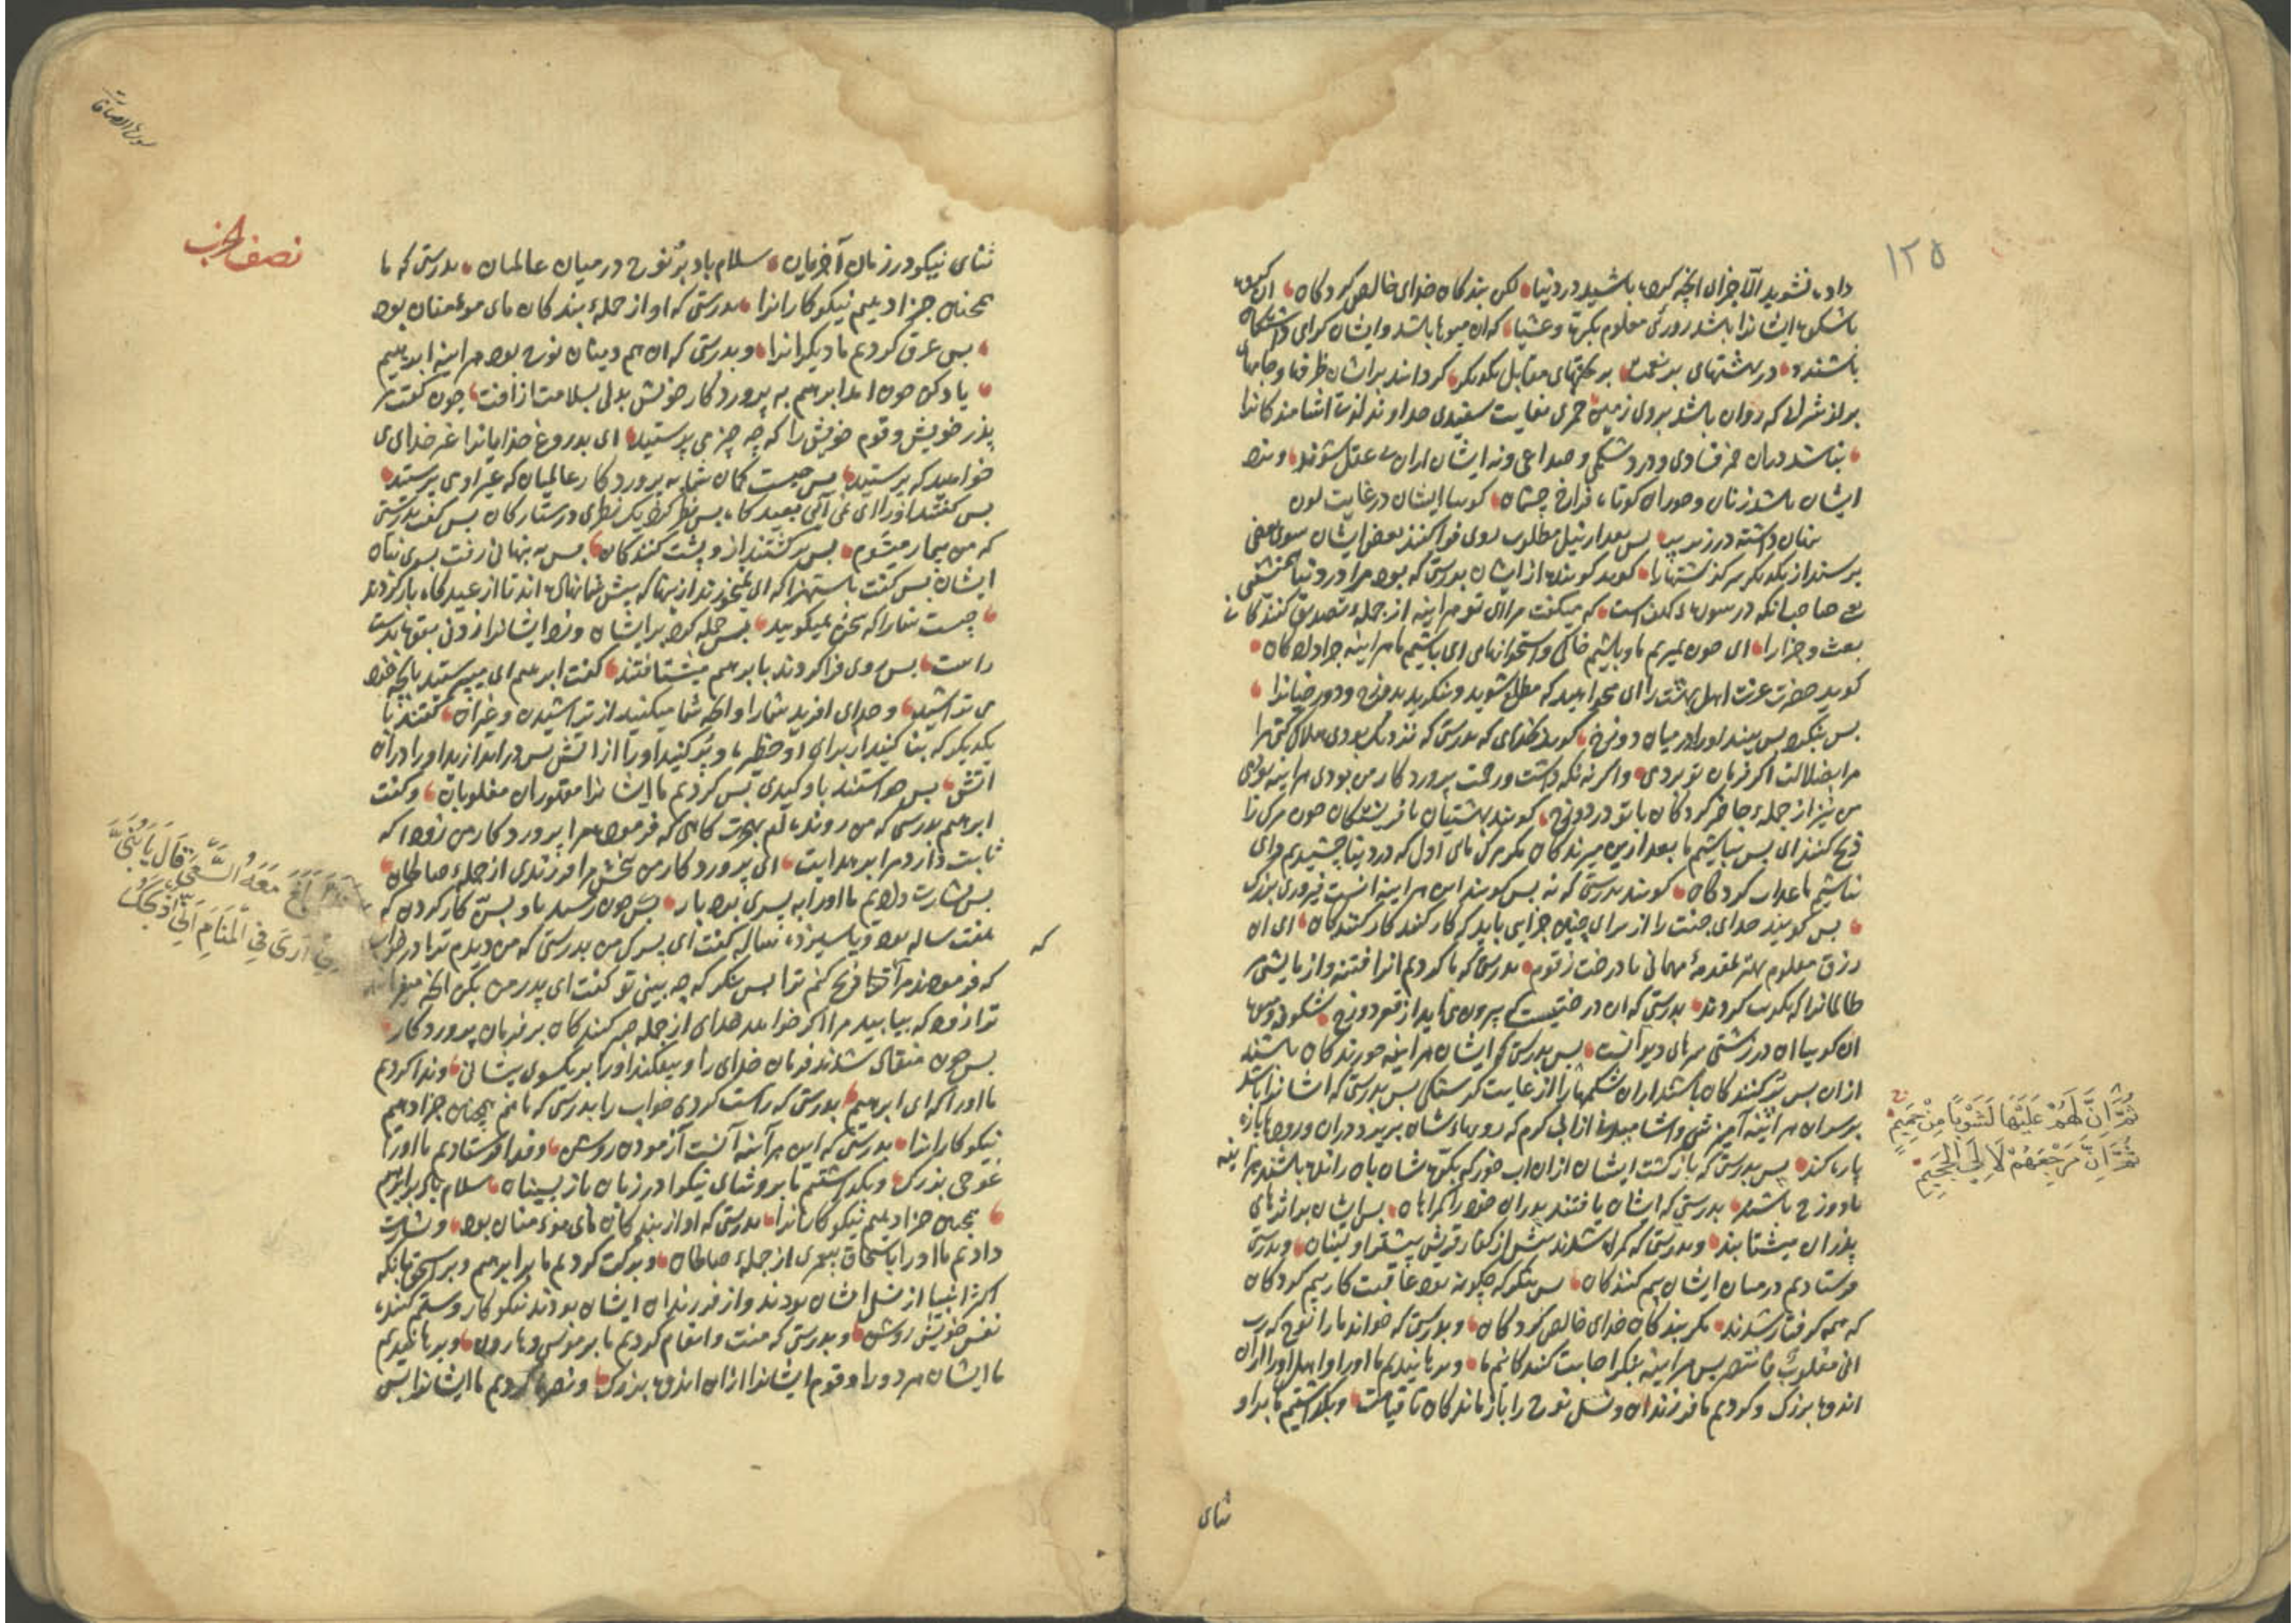 ۱۲۵
داده نشوید الّا جزای آنچه کرده باشید در دنیا لکن بندکان خدای خالص کردکان ان کروه
باشکوه ایشانرا باشد روزئ معلوم بکرة وعشیا که ان میوها باشد وایشان کرامی داشتکان
باشند در بهشتهای پر نعمت بر تختهای مقابل یکدیکر کردانند بر ایشان ظرفها وجامهای
پر از شراب که روان باشد بروی زمین خمری بغایت سفیدی خداوند لذت اشامندکانرا
نباشد دران خمر فسادی ودرد شکمی وصداعی ونه ایشان ازان بی عقل شوند ونزد
ایشان باشد زنان وحوران کوتاه فراخ چشمان کوییا ایشان در غایت لون
پس بعد از نیل مطلوب روی فرا کنند بعض ایشان سوی بعضی
پرسند از یکدیکر سرکذشتهارا کوید کوینده از ایشان بدرستی که بود مرا در دنیا همنشینی
که میکفت مرا ای تو هراینه از جمله تصدیق کنندکانی
بعث وجزارا ای چون بمیریم ما وباشیم خاکی واستخوانهای ای باشیم ما هراینه جزا دادکان
کوید حضرت عزت اهل بهشت را ای میخواهید که مطلع شوید وبنکرید بدوزخ ودوزخیانرا
پس بنکرد پس بیند اورا در میان دوزخ کوید بخدای که بدرستی که نزدیک بودی هلاک کنی مرا
مرا بضلالت اکر فرمان تو بردمی واکر نه نکهداشت ورحمت پروردکار من بودی هراینه بودمی
من نیز از جمله حاضر کردکان با تو در دوزخ کویند بهشتیان با فریشتکان چون مرک را
ذبح کنند ای پس نباشیم ما بعد ازین میرندکان مکر مرک مای اول که در دنیا چشیدیم وای
نباشیم ما عذاب کردکان کویند بدرستی که نه پس کویند این هراینه انست فیروزی بزرک
پس کویند خدای جنت را از برای چنین جزایی باید که کار کنند کار کنندکان ای ان
رزق معلوم بهتر بمقدمهٔ مهمانی یا درخت زقوم بدرستی که ما کردیم انرا فتنه وازمایشی مر
ظالمانرا بدرستی که ان درختیست که بیرون می اید از قعر دوزخ شکوفه ومیوه
ان کوییا ان در زشتی سرهای دیوانست پس بدرستی که ایشان هراینه خورندکان باشند
ازان پس پر کنندکان باشند ازان شکمهارا از غایت کرسنکی پس بدرستی که ایشانرا باشد
برسر ان هراینه آمیزشی واشامیدنی از اب کرم که رویهاء شان بریزد دران ورودها پاره
پاره کند پس بدرستی که بازکشت ایشان ازان اب خورکه بکه شان بان رانده باشند هراینه
با دوزخ باشد بدرستی که ایشان یافتند پدران خودرا کمراهان پس ایشان براثرهای
پدران میشتابند وبدرستی که کمراه شدند پیش از کفار قریش پیشتر اولینان وبدرستی
فرستادیم درمیان ایشان بیم کنندکان پس بنکر که چکونه بود عاقبت کار بیم کردکان
که همه کرفتار شدند مکر بندکان خدای خالص کردکان وبدرستی که خواند مارا نوح که رب
انی مغلوب فانتصر پس هراینه نیکو اجابت کنندکانیم ما وبرهانیدیم ما اورا واهل اورا ازان
اندوه بزرک وکردیم ما فرزندان ونسل نوح را باز ماندکان تا قیامت وبکذاشتیم ما بر او
ثُمَّ اِنَّ لَهُمْ عَلَیْهَا لَشَوْبًا مِنْ حَمِیمٍ
ثُمَّ اِنَّ مَرْجِعَهُمْ لَا اِلَی الْجَحِیمِ
ثنای
سورة الصافات
نصف الحزب
ثنای نیکو در زمان آخریان سلام باد بر نوح در میان عالمان بدرستی که ما
همچنین جزا دهیم نیکوکارانرا بدرستی که او از جمله بندکان مای مؤمنان بود
پس غرق کردیم ما دیکرانرا وبدرستی که ان هم دینان نوح بود هراینه ابراهیم
یاد کن چون امد ابراهیم به پروردکار خویش بدلی بسلامت از آفت چون کفت مر
پذر خویش وقوم خویش را که چه چیز می پرستید ای بدروغ خدایانرا غیر خدای می
خواهید که پرستید پس چیست کمان شما به پروردکار عالمیان که غیر او می پرستید
پس نظر کرد یک نظری در ستارکان پس کفت بدرستی
که من بیمار میشوم پس برکشتند از و پشت کنندکان پس به پنهانی رفت بسوی بتان
ایشان پس کفت باستهزا که ای نمیخورند ازینها که پیش شما نهاده اند تا از عیدکاه باز کردند
چیست شمارا که سخن نمیکویید پس حمله کرد بر ایشان وزد ایشانرا زدنی بقوة بدست
راست پس روی فرا کردند با ابراهیم میشتافتند کفت ابراهیم ای میپرستید بآنچه خود
می تراشید وخدای افرید شمارا وانچه شما میکنید از تراشیدن وغیرآن کفتند با
یکدیکر که بنا کنید از برای او حظیره وپر کنید اورا از اتش پس در اندازید اورا دران
اتش پس خواستند باو کیدی پس کردیم ما ایشانرا مقهوران مغلوبان وکفت
ابراهیم بدرستی که من رونده ام بهجرت کاهی که فرمود مرا پروردکار من زود که
ثابت دارد مرا بر هدایت ای پروردکار من ببخش مرا فرزندی از جملهٔ صالحان
پس بشارت دادیم ما اورا به پسری بردبار پس چون رسید باو بسن کار کردن که
هفت ساله بود ویا سیزده ساله کفت ای پسرک من بدرستی که من دیدم ترا در خواب
که
که فرمودند مرا که ذبح کنم ترا پس بنکر که چه بینی تو کفت ای پدر من بکن انچه میفرمایند
ترا زود که بیابید مرا اکر خواهد خدای از جمله صبر کنندکان بر فرمان پروردکار
پس چون منقاد شدند فرمان خدای را وبیفکند اورا بریکسوی پیشانی وندا کردیم
ما اورا که ای ابراهیم بدرستی که راست کردی خواب را بدرستی که ما هم همچنین جزا دهیم
نیکوکارانرا بدرستی که این هرآینه آنست آزمودن روشن وفدا فرستادیم ما اورا
عوضی بزرک وبکذاشتیم ما برو ثنای نیکو در زمان باز پسینان سلام باد بر ابراهیم
همچنین جزا دهیم نیکوکارانرا بدرستی که او از بندکان مای مؤمنان بود وبشارت
دادیم ما اورا باسحاق پیغمبری از جمله صالحان وبرکت کردیم ما بر ابراهیم وبر اسحق بانکه
اکثر انبیا از نسل ایشان بودند واز فرزندان ایشان بودند نیکوکار وستم کننده
نفس خویش روشن وبدرستی که منت وانعام کردیم ما بر موسی وهارون وبرهانیدیم
ما ایشان هر دورا وقوم ایشانرا ازان اندوه بزرک ونصرة کردیم ما ایشانرا پس
فَلَمَّا بَلَغَ مَعَهُ السَّعْیَ قَالَ یَا بُنَیَّ
اِنِّی اَرَی فِی الْمَنَامِ اَنِّی اَذْبَحُكَ